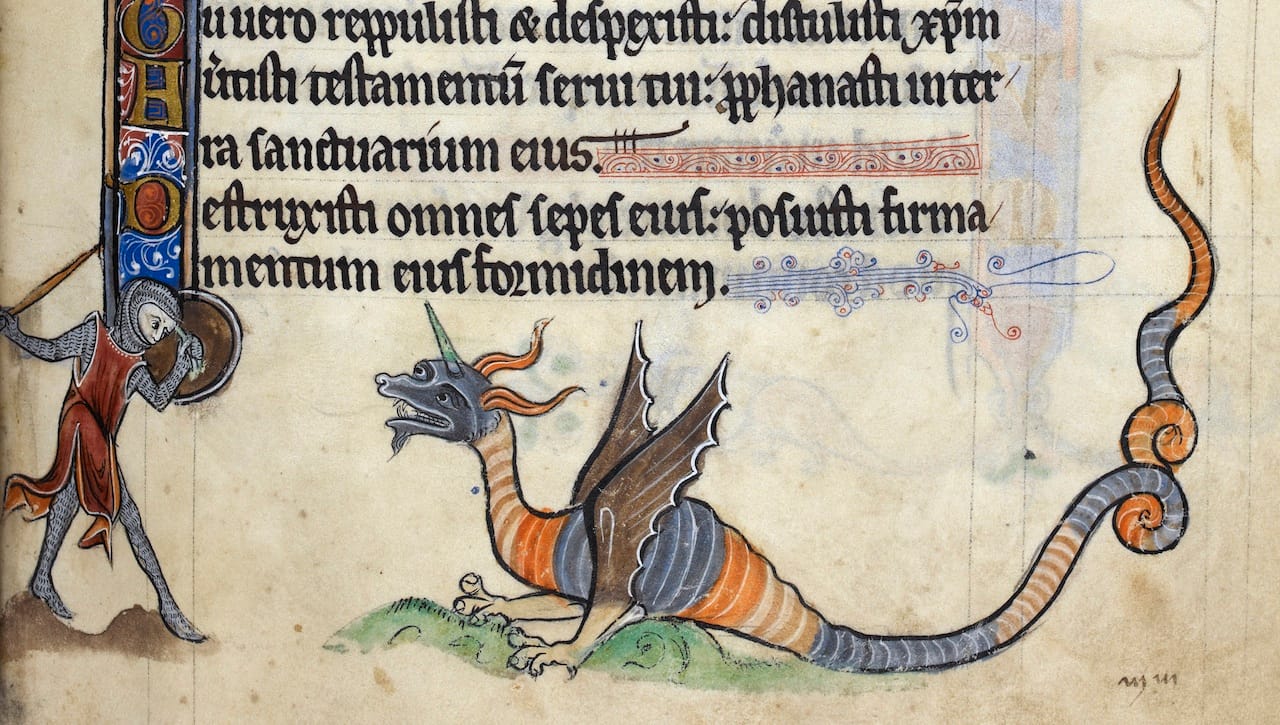 Tu uero reppulisti & despexisti: distulisti xp̄m
Au͛tisti testamentū serui tui: ꝓphanasti in ter
ra sanctuarium eius.
Destruxisti omnes sepes eius: posuisti firma
mentum eius formidinem.